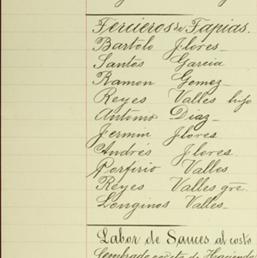 Tercieros de Tapias.
Bartolo Flores.
Santos Garcia
Ramon Gomez
Reyes Valles hijo
Antonio Diaz.
Fermin Flores
Andrés Flores
Porfirio Valles
Reyes Valles gre.
Longinos Valles.
Labor de Sauces al costo
Sembrado cuenta de Hacienda